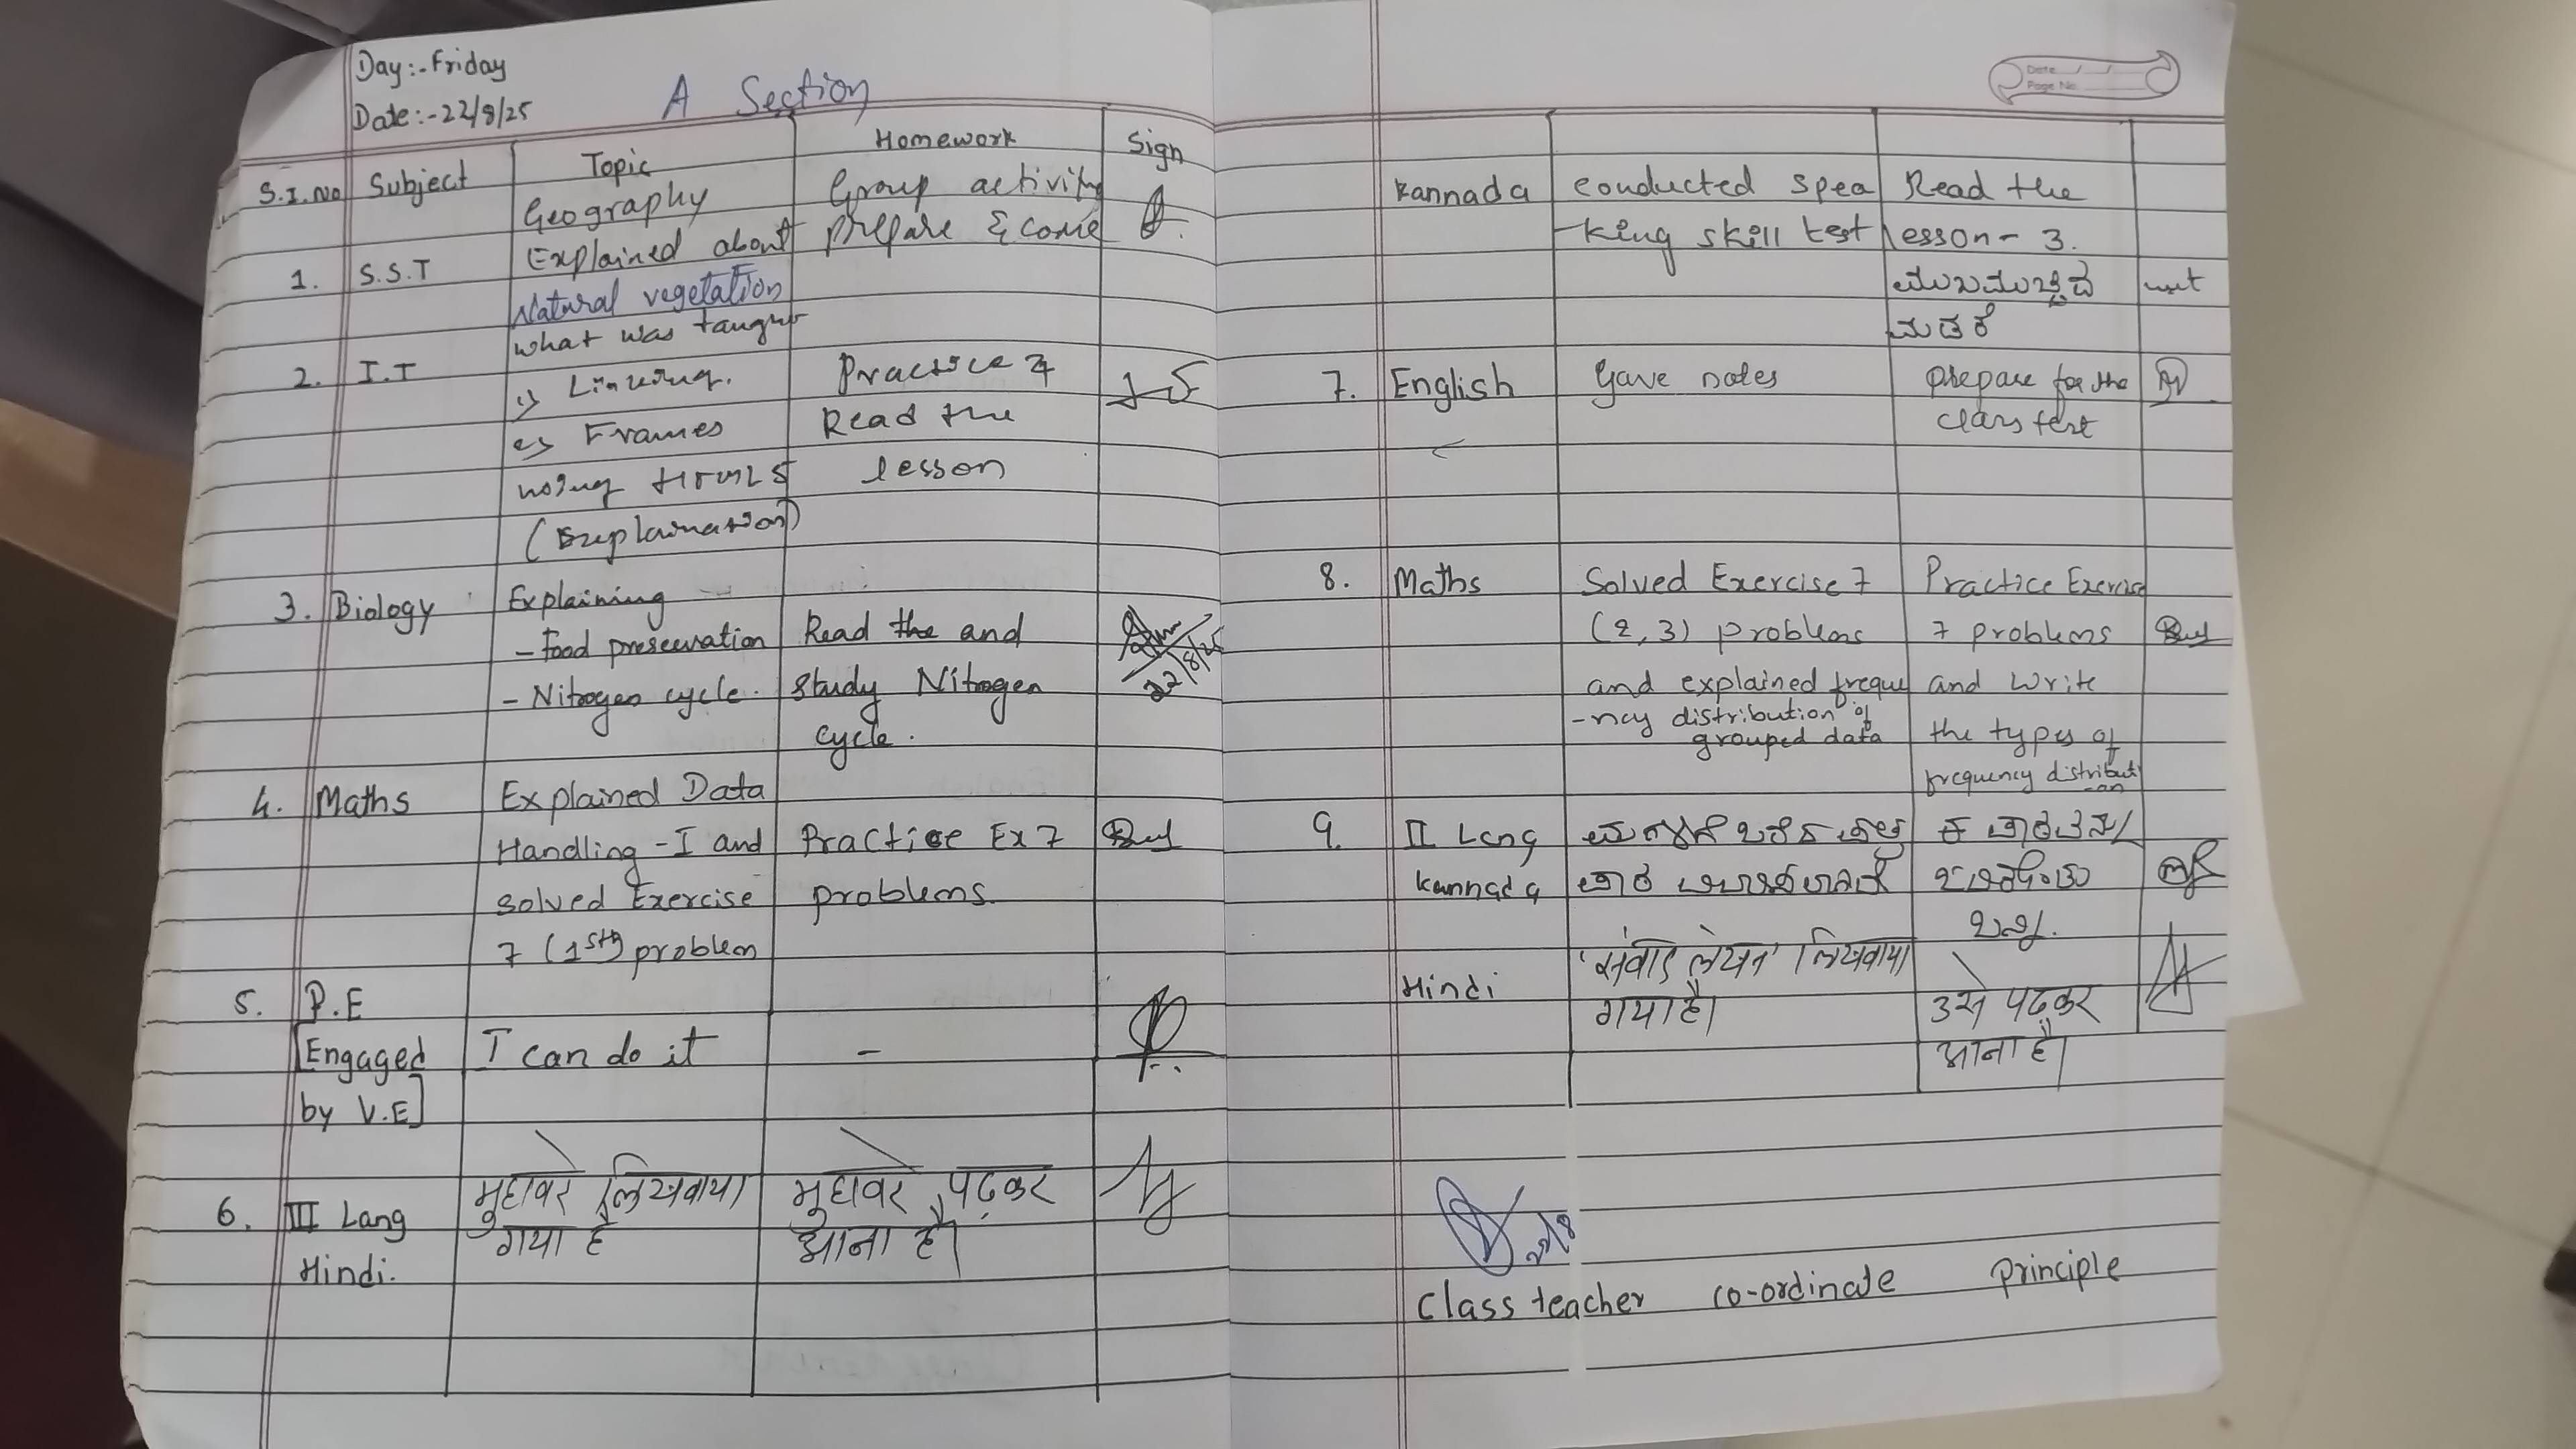 Day:-Friday
Date:-22/8/25
A Section
S.I.No Subject Topic Homework Sign
Geography Group activity
Explained about prepare & come
1. S.S.T
Natural vegetation
what was taught
2. I.T
1) Linking. Practice &
2) Frames Read the
using HTML5 lesson
(Explaination)
3. Biology Explaining
- Food preservation Read the and
- Nitrogen cycle. Study Nitrogen
cycle.
22/8/25
4. Maths Explained Data
Handling - I and Practice Ex 7
solved Exercise problems.
7 (1st) problem
5. P.E
[Engaged I can do it -
by V.E]
6. III Lang मुहावरे लिखवाया मुहावरे पढ़कर
Hindi. गया है आना है।
Date / /
Page No
Kannada conducted spea Read the
-king skill test lesson - 3.
7. English Gave notes prepare for the
class test
8. Maths Solved Exercise 7 Practice Exercise
(2,3) problems 7 problems
and explained freque and write
-ncy distribution of the types of
grouped data frequency distribut
-on
9. II Lang
Kannada
Hindi 'संवाद लेखन' लिखवाया
गया है। उसे पढ़कर
आना है।
22/8
Class teacher co-ordinate principle